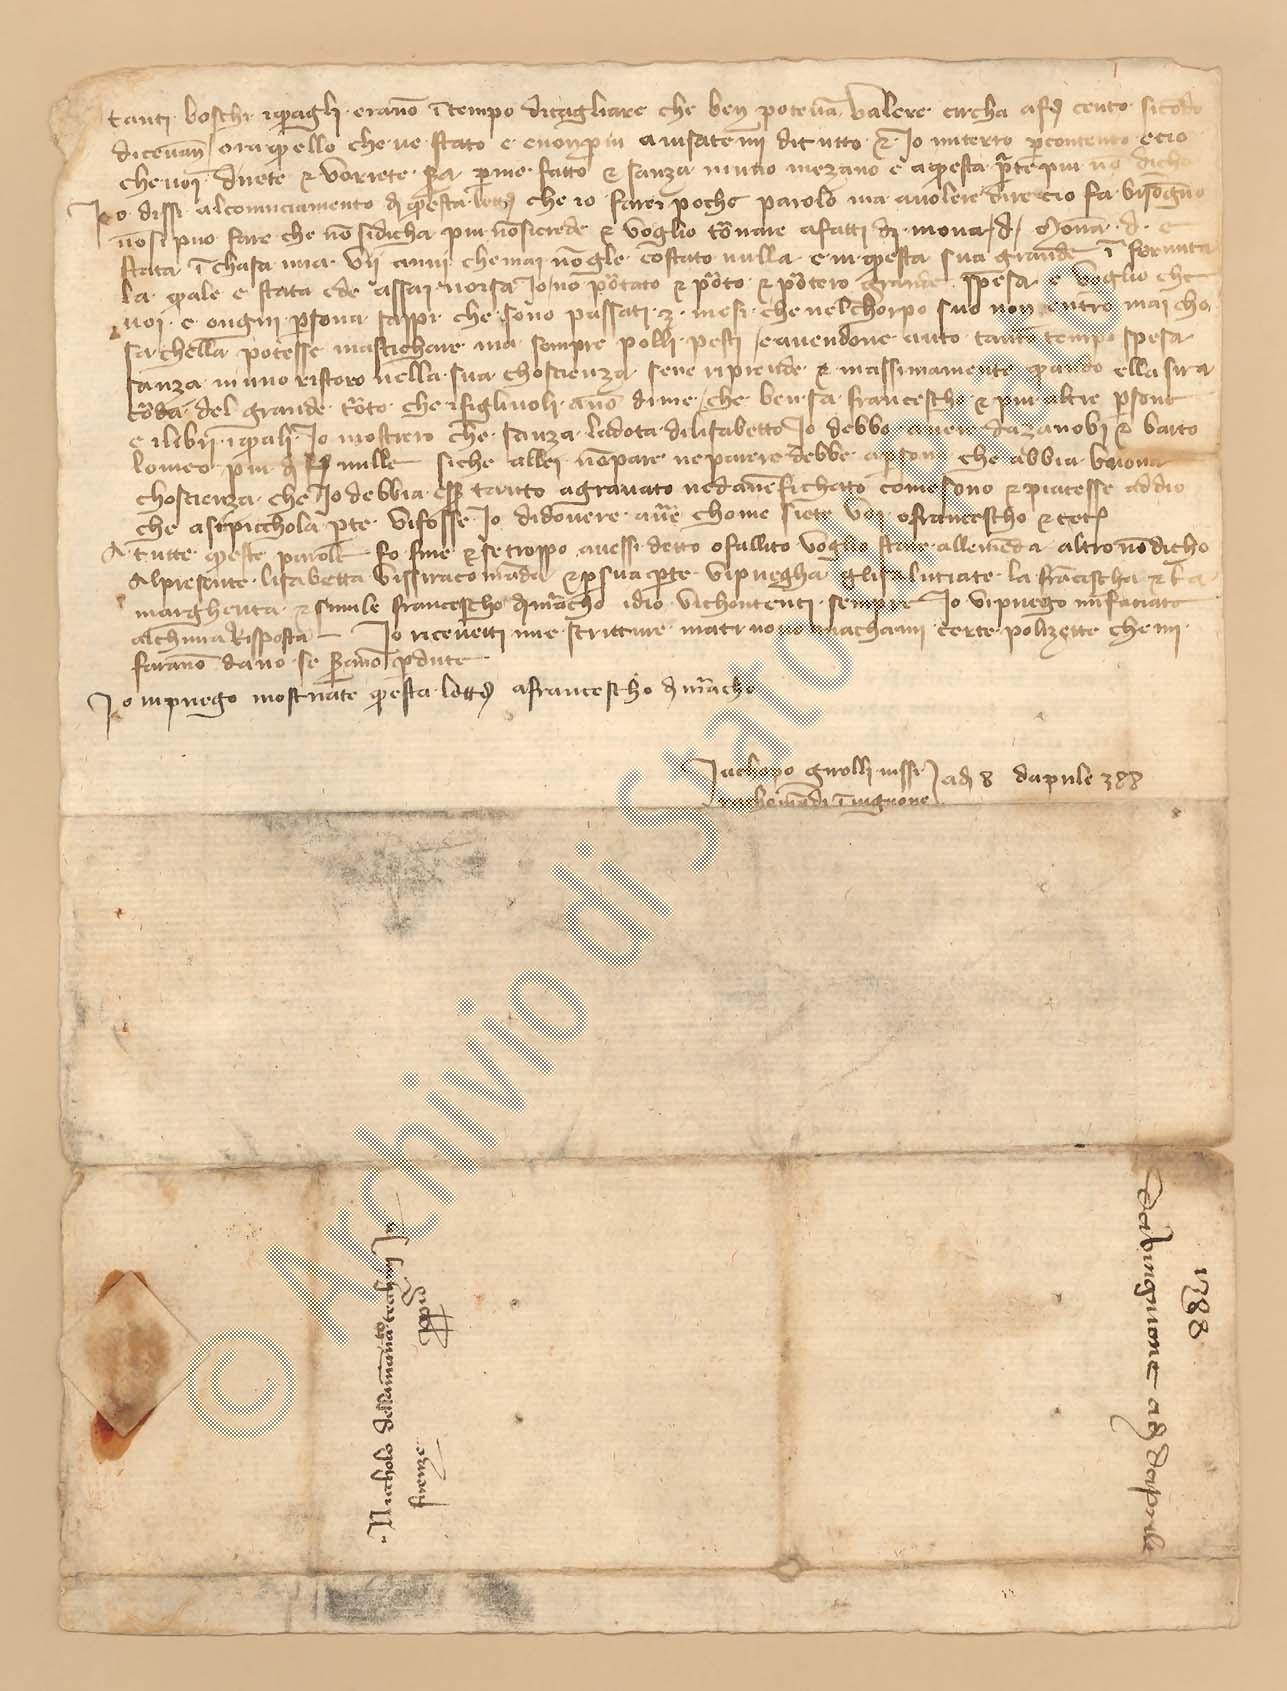 tanti boschi i quagli erano ī tempo di tagliare che ben potevā valere circha a fj cento sicōdo
diceuan / ora quello che ne stato e e non piu avisatemi di tutto & Io mi terro p contento e cio
che voi avete & vorrete sara p me fatto & sanza niuno mezano e a questa pte piu nō dicho
Io dissi al cominciamento di questa lettera che io farei poche parole ma a volere dire cio fa bisogno
nō si puo fare che nō si dicha piu nō si crede & voglio tōrnare a fatti di mona /d/ Monā d e
stata ī chasa mia vij anni che mai nōgle costato nulla e in questa sua grande ī fermita
la quale e stata ede assai noiosa Io no pōtato & pōto & pōtero grande spesa e voglio che
voi e ongni psona sappi che sono passati 3 mesi che nel chorpo suo non entro mai cho
sa chella potesse mastichare ma sempre polli pesti / e avendone auto tanto tempo spesa
sanza niuno ristoro nella sua choscienza se ne riprende & massimamente quando ella si ra
corda del grande torto che i figliuoli āno di me / che ben sa francescho & piu altre psone
e i libri i quali Io mostrero che sanza la dota di lisabetta Io debbo avere da zanobi & barto
lomeo piu di mille siche allei nō pare ne parere debbe a psona che abbia buona
choscienza che Io debbia esser tanto agravato ne danefichato come sono & piacesse addio
che a sipicchola pte vi fosse Io di dovere avere chome siete voi o francescho & cet
A tutte queste parole fo fine & se troppo avessi detto o fallito voglio stare allemēda altro nō dicho
Al presente lisabetta vi si racomāda & p sua pte vi priegha gli salutiate la francescha & la
margherita & simile francescho di marcho idio vi chontenti sempre Io vi priego mi facciate
alchuna risposta — Io ricevetti mie scritture ma truovo macha mi certe polizette che mi
farānō dāno se sarano pdute
Io vi priego mostriate questa lettera a francescho di marcho
Iachopo girolli vi si
rachomādi ī vignone
a di 8 daprile 388
Nicholo dellāmanato tecchini In
firenze
1388
Da vingnione a di daprile
© Archivio di Stato di Prato